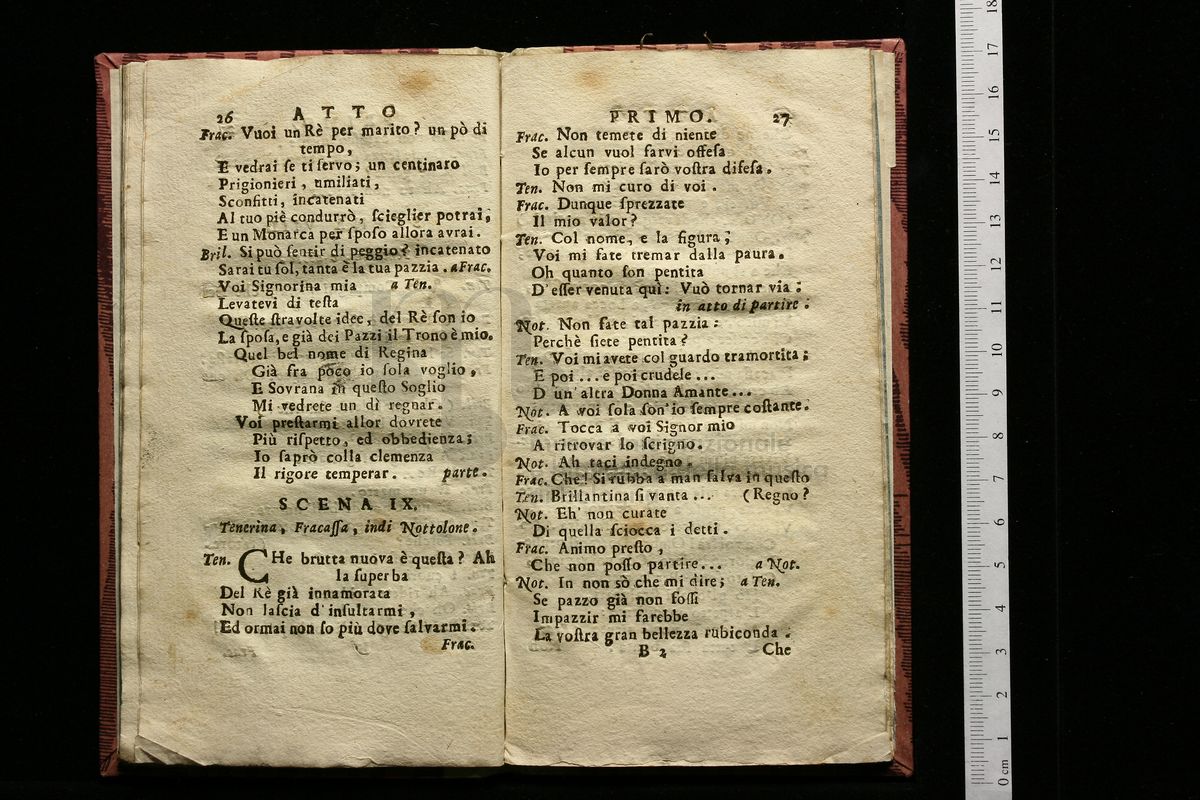 26 ATTO
Frac. Vuoi un Rè per marito? un pò di
tempo,
E vedrai ſe ti ſervo; un centinaro
Prigionieri, umiliati,
Sconfitti, incatenati
Al tuo piè condurrò, ſcieglier potrai,
E un Monarca per ſpoſo allora avrai.
Bril. Si può ſentir di peggio? incatenato
Sarai tu ſol, tanta è la tua pazzia. a Frac.
Voi Signorina mia a Ten.
Levatevi di teſta
Queſte ſtravolte idee, del Rè ſon io
La ſpoſa, e già dei Pazzi il Trono è mio.
Quel bel nome di Regina
Già fra poco io ſola voglio,
E Sovrana in queſto Soglio
Mi vedrete un dì regnar.
Voi preſtarmi allor dovrete
Più riſpetto, ed obbedienza;
Io ſaprò colla clemenza
Il rigore temperar. parte.
SCENA IX.
Tenerina, Fracaſſa, indi Nottolone.
Ten. CHe brutta nuova è queſta? Ah
la ſuperba
Del Rè già innamorata
Non laſcia d'inſultarmi,
Ed ormai non ſo più dove ſalvarmi.
Frac.
PRIMO. 27
Frac. Non temete di niente
Se alcun vuol farvi offeſa
Io per ſempre ſarò voſtra difeſa.
Ten. Non mi curo di voi.
Frac. Dunque ſprezzate
Il mio valor?
Ten. Col nome, e la figura;
Voi mi fate tremar dalla paura.
Oh quanto ſon pentita
D'eſſer venuta quì: Vuò tornar via;
in atto di partire.
Not. Non fate tal pazzia:
Perchè ſiete pentita?
Ten. Voi mi avete col guardo tramortita;
E poi ... e poi crudele ...
D un'altra Donna Amante...
Not. A voi ſola ſon'io ſempre coſtante.
Frac. Tocca a voi Signor mio
A ritrovar lo ſcrigno.
Not. Ah taci indegno.
Frac. Che! Si rubba a man ſalva in queſto
Ten. Brillantina ſi vanta ... (Regno?
Not. Eh' non curate
Di quella ſciocca i detti.
Frac. Animo preſto,
Che non poſſo partire... a Not.
Not. In non sò che mi dire; a Ten.
Se pazzo già non foſſi
Impazzir mi farebbe
La voſtra gran bellezza rubiconda.
B 2 Che
18
17
16
15
14
13
12
11
10
9
8
7
6
5
4
3
2
1
0 cm